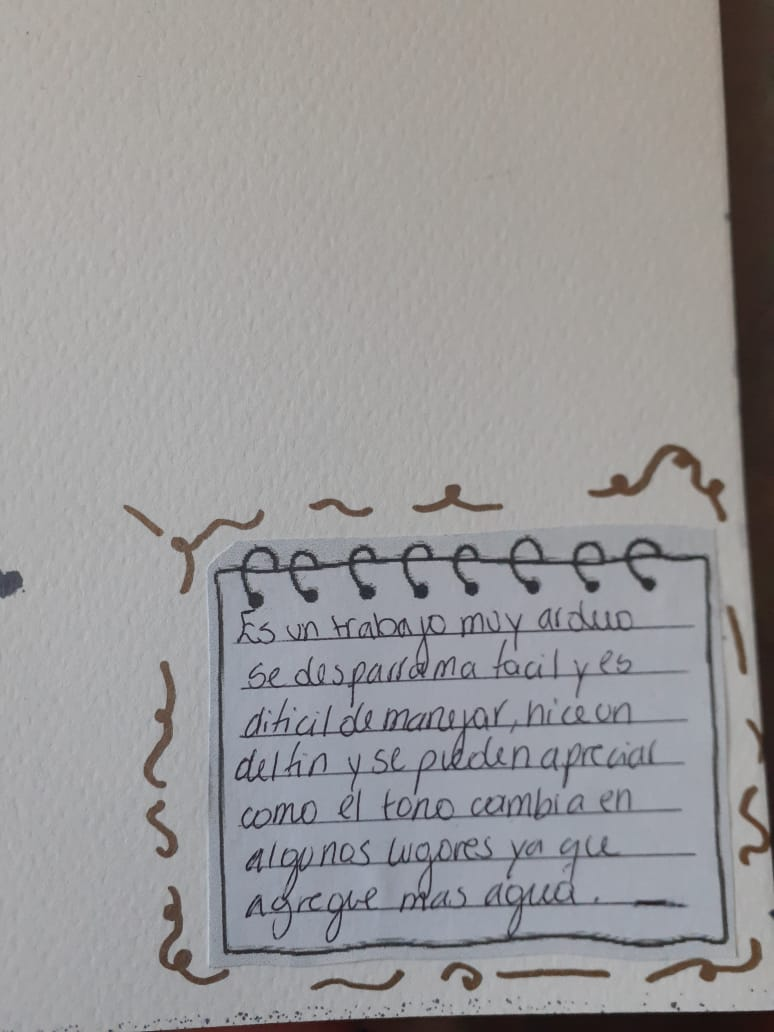 Es un trabajo muy arduo
se desparrama facil y es
dificil de manejar, hice un
delfin y se pueden apreciar
como el tono cambia en
algunos lugares ya que
agregue mas agua.